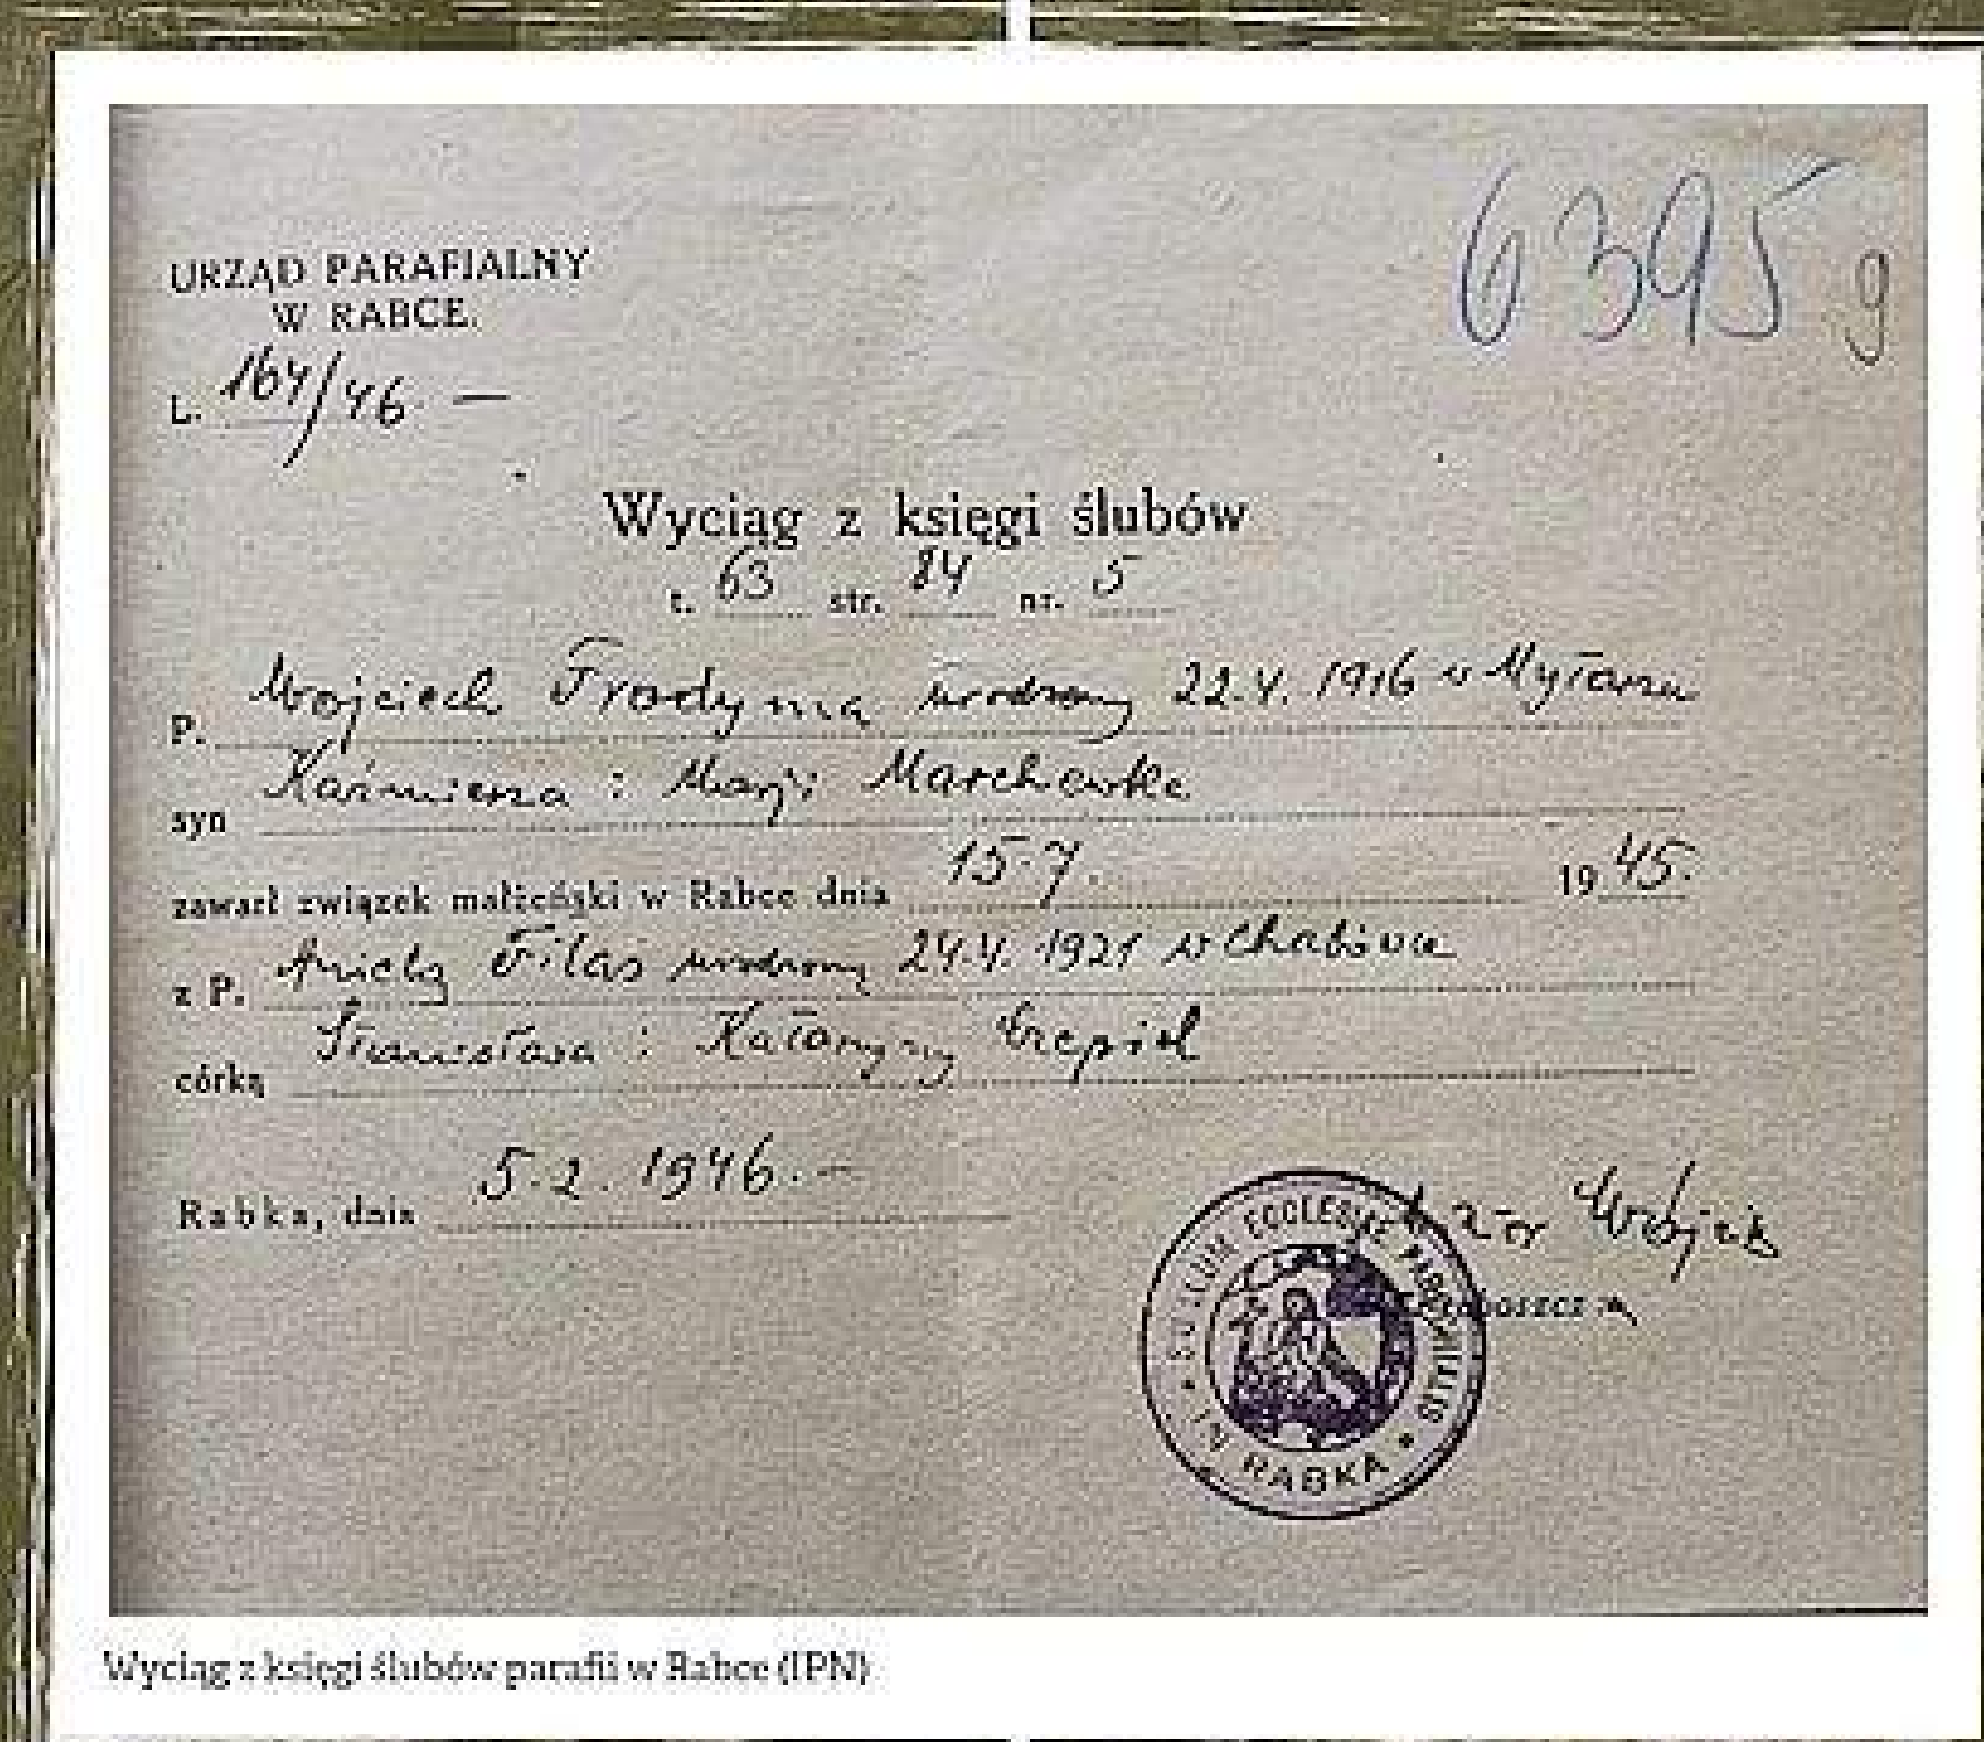 6395 g
URZĄD PARAFIALNY
W RABCE.
L. 164/46 —
Wyciąg z księgi ślubów
t. 63 str. 84 nr. 5
P. Wojciech Frodyma urodzony 22.4. 1916 w
syn Kaźmierza i Maryi Marchewka
zawarł związek małżeński w Rabce dnia 15.7. 1945.
z P. Anielą Filas urodzoną 24.4. 1921 w Chabówce
córką Stanisława i Katarzyny
Rabka, dnia 5.2. 1946.—
Wójcik
Proboszcz
SIGILLUM ECCLESIAE PAROCHIALIS
IN RABKA
Wyciąg z księgi ślubów parafii w Rabce (IPN)